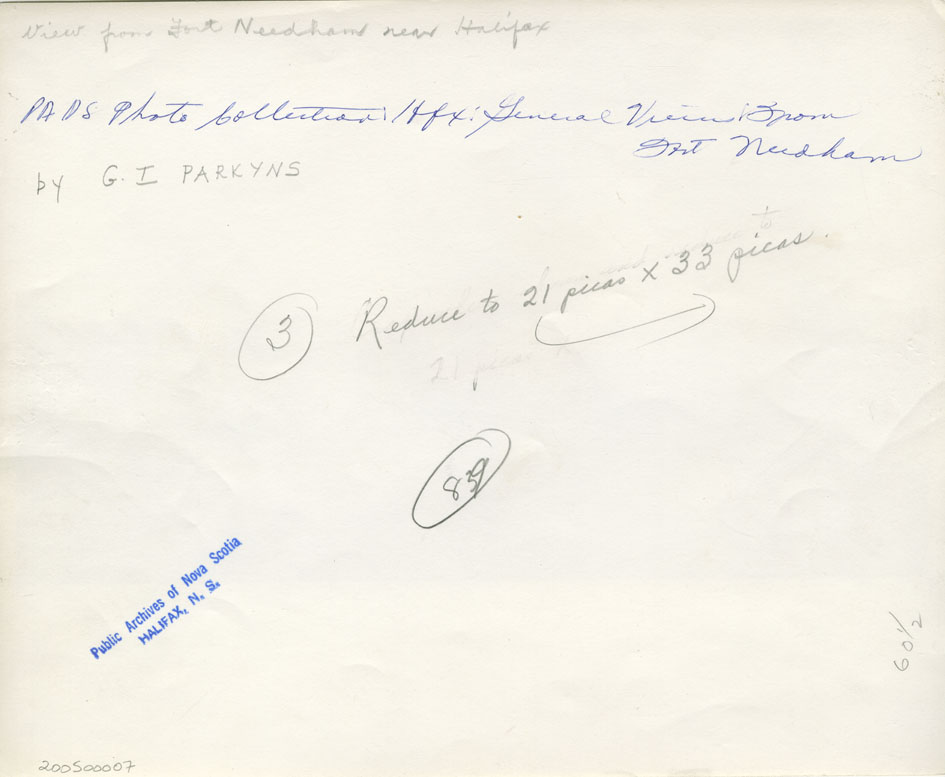 View from Fort Needham near Halifax
PANS Photo Collection: Hfx: General View: From
Fort Needham
by G. I PARKYNS
3 Reduce to 21 picas x 33 picas.
21 picas x
Public Archives of Nova Scotia
HALIFAX, N. S.
60 1/2
200500007